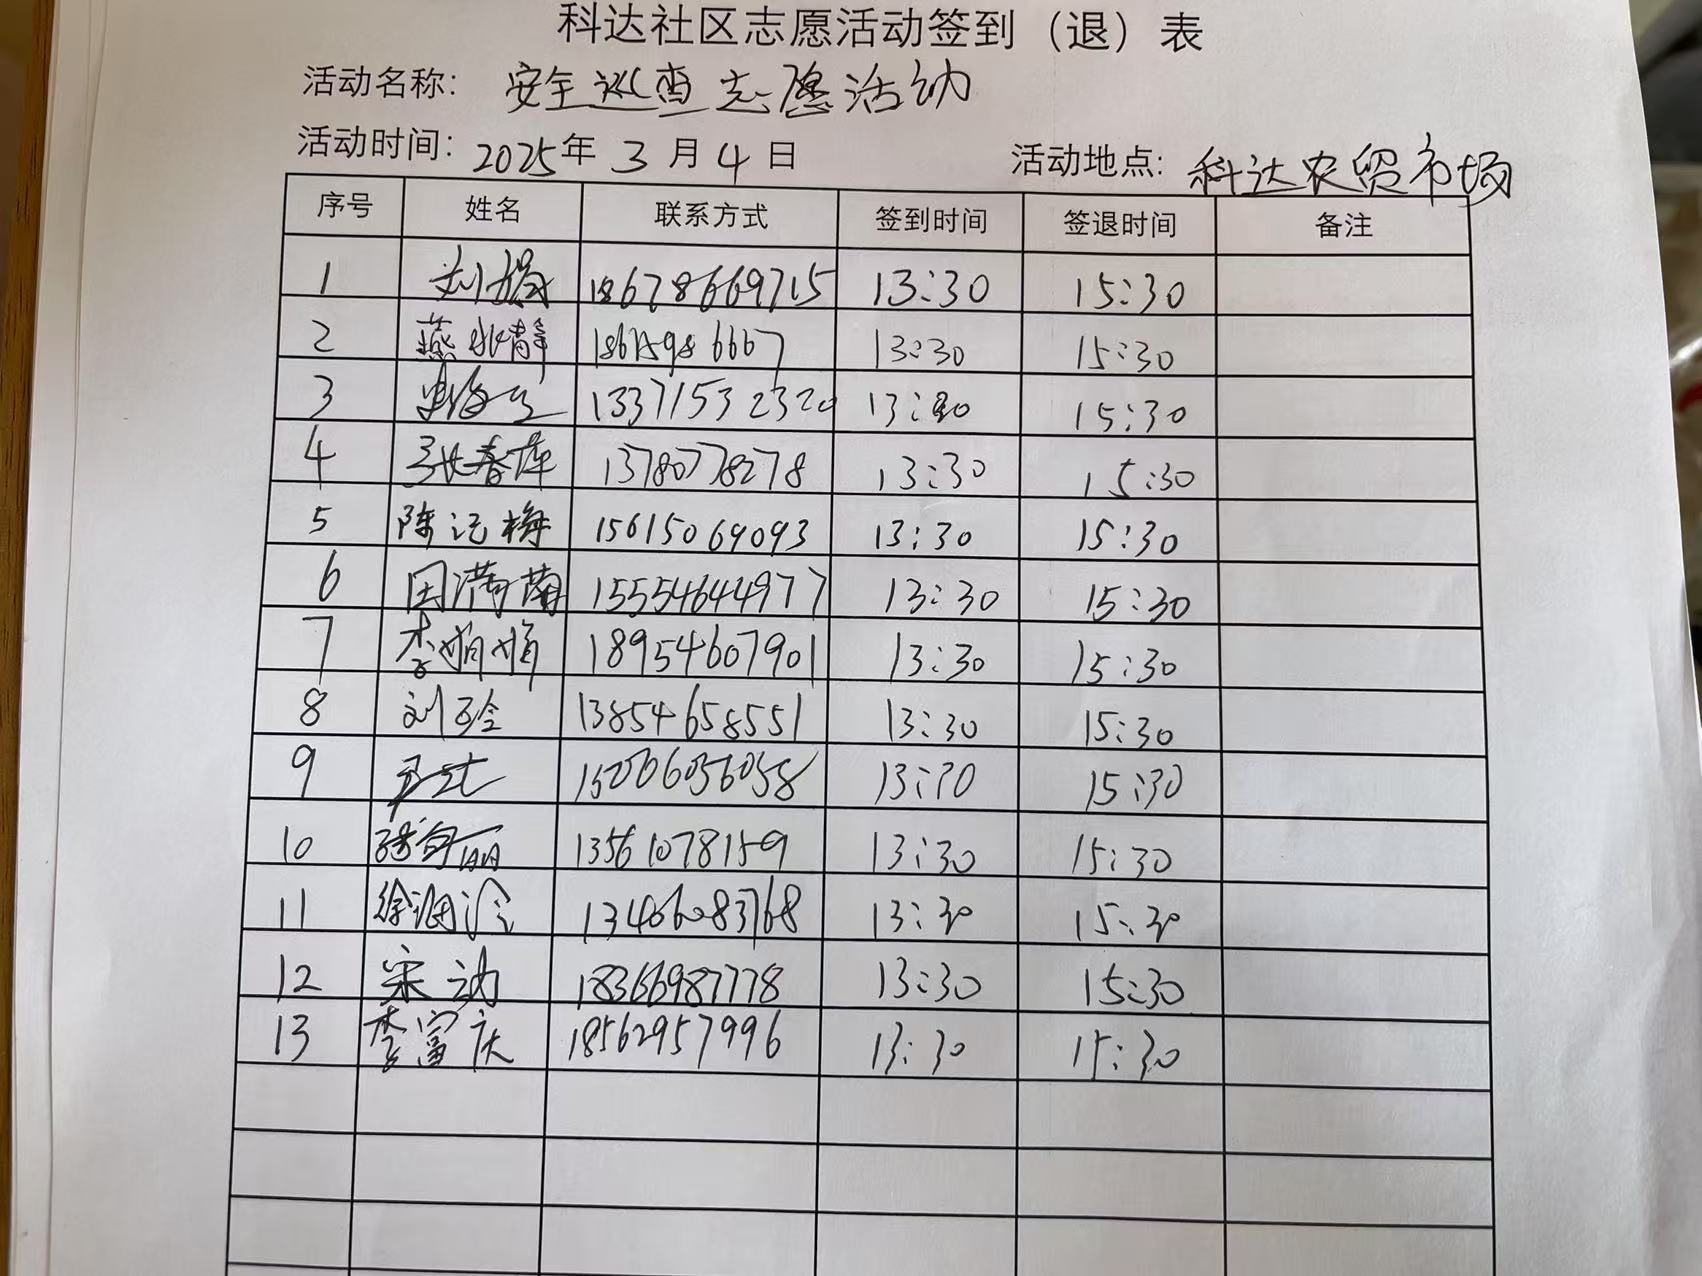 科达社区志愿活动签到（退）表
活动名称： 安全巡查志愿活动
活动时间：2025年 3 月 4 日 活动地点：科达农贸市场
序号 姓名 联系方式 签到时间 签退时间 备注
1 刘 18678669715 13:30 15:30
2 燕 静 18615986667 13:30 15:30
3 13371532320 13:30 15:30
4 张春萍 13780778278 13:30 15:30
5 陈记梅 15615069093 13:30 15:30
6 田满菊 15554644977 13:30 15:30
7 李娟娟 18954607901 13:30 15:30
8 刘玲 13854658551 13:30 15:30
9 15206036058 13:30 15:30
10 丽 13561078159 13:30 15:30
11 徐 13406083768 13:30 15:30
12 宋动 18366987778 13:30 15:30
13 李富庆 18562957996 13:30 15:30